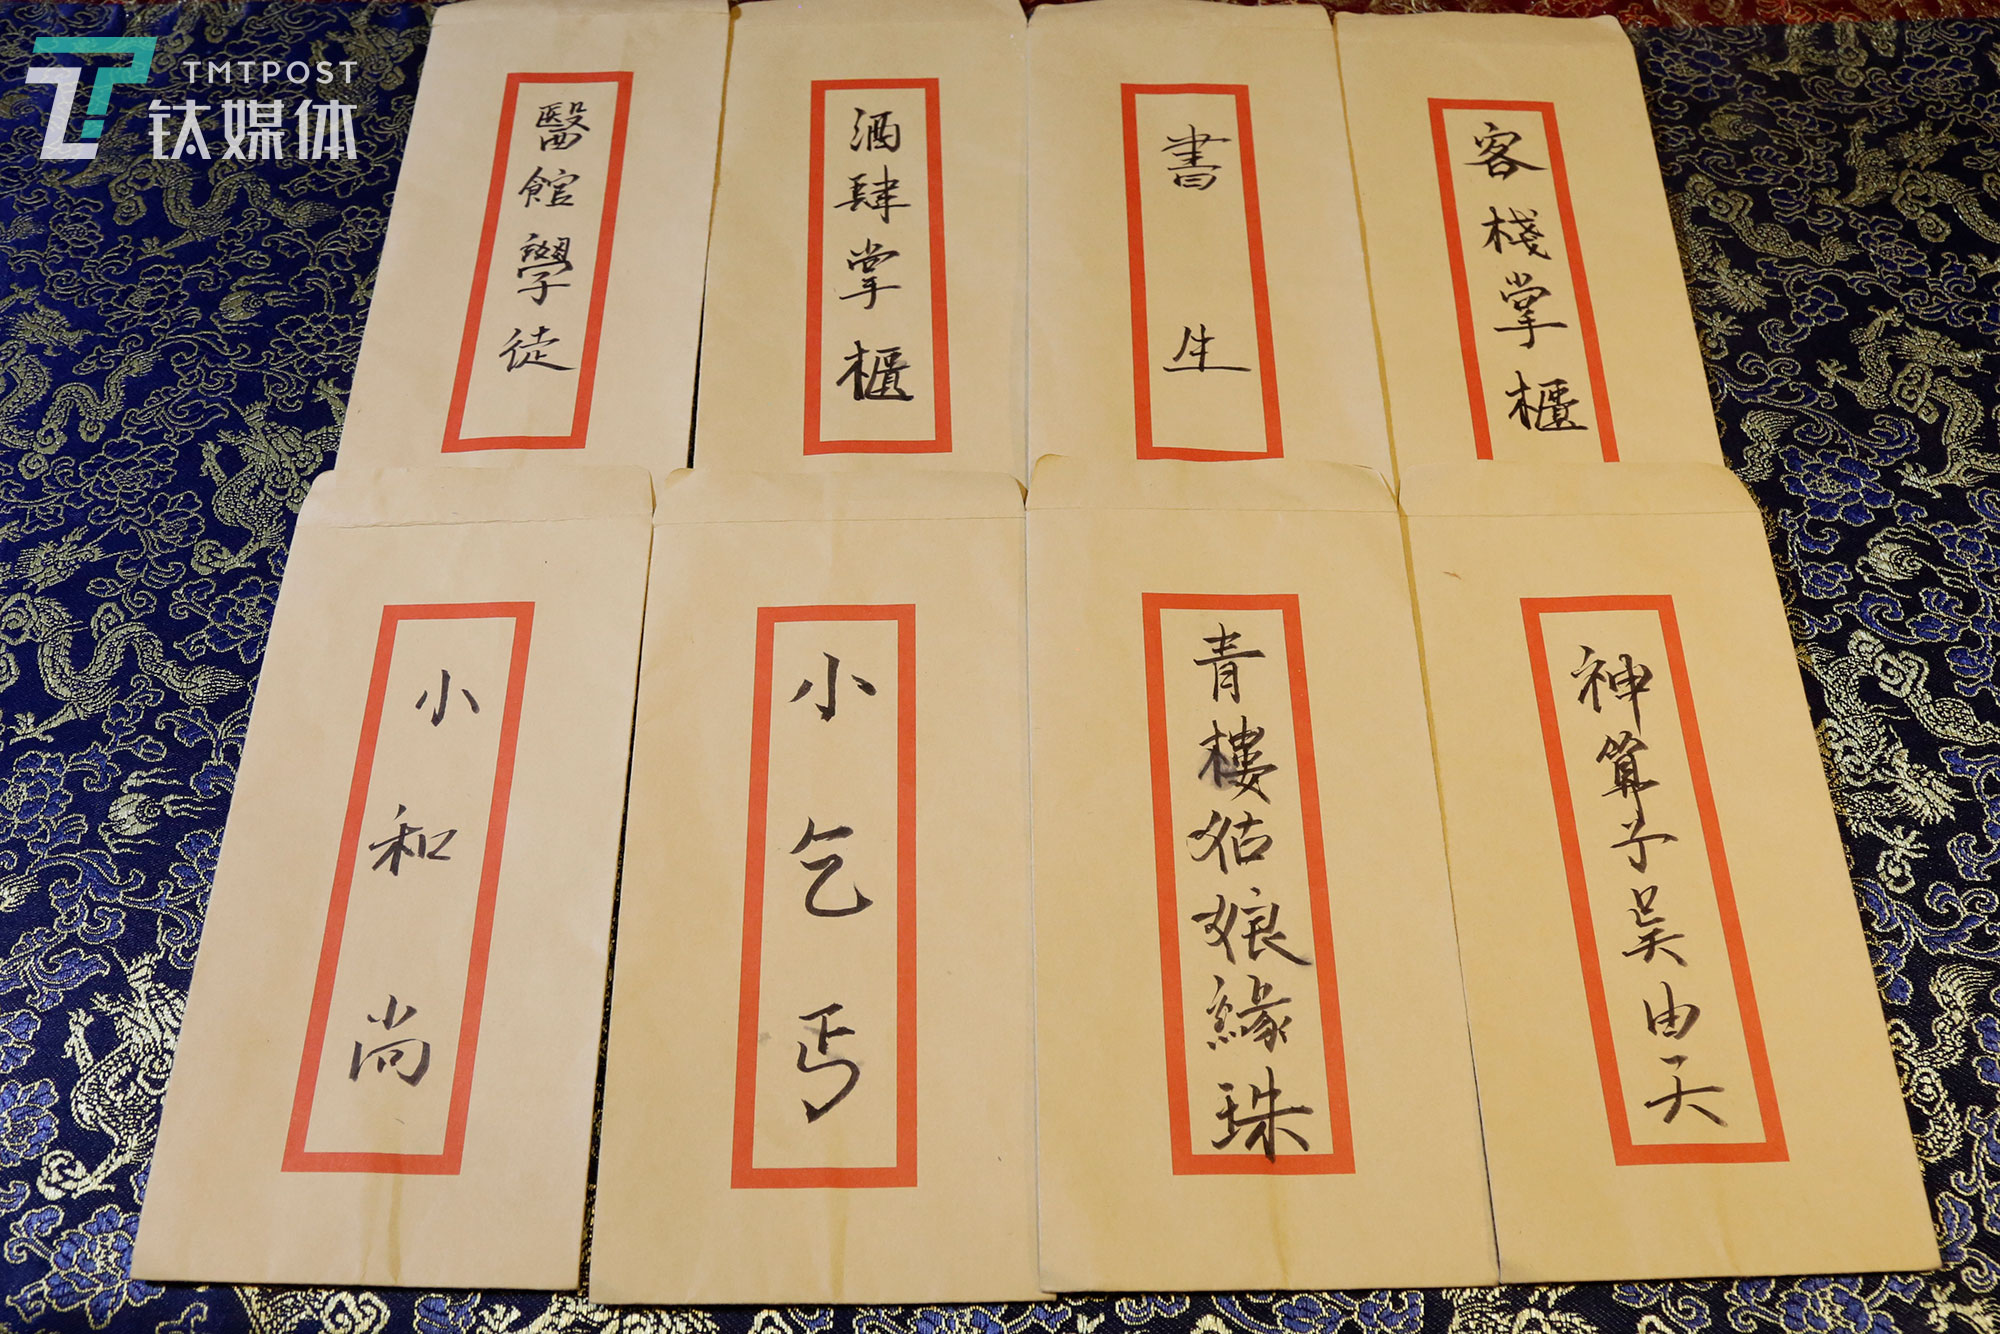 TMTPOST
钛媒体
醫館學徒
酒肆掌櫃
書生
客棧掌櫃
小和尚
小乞丐
青樓姑娘緣珠
神算子吴由天